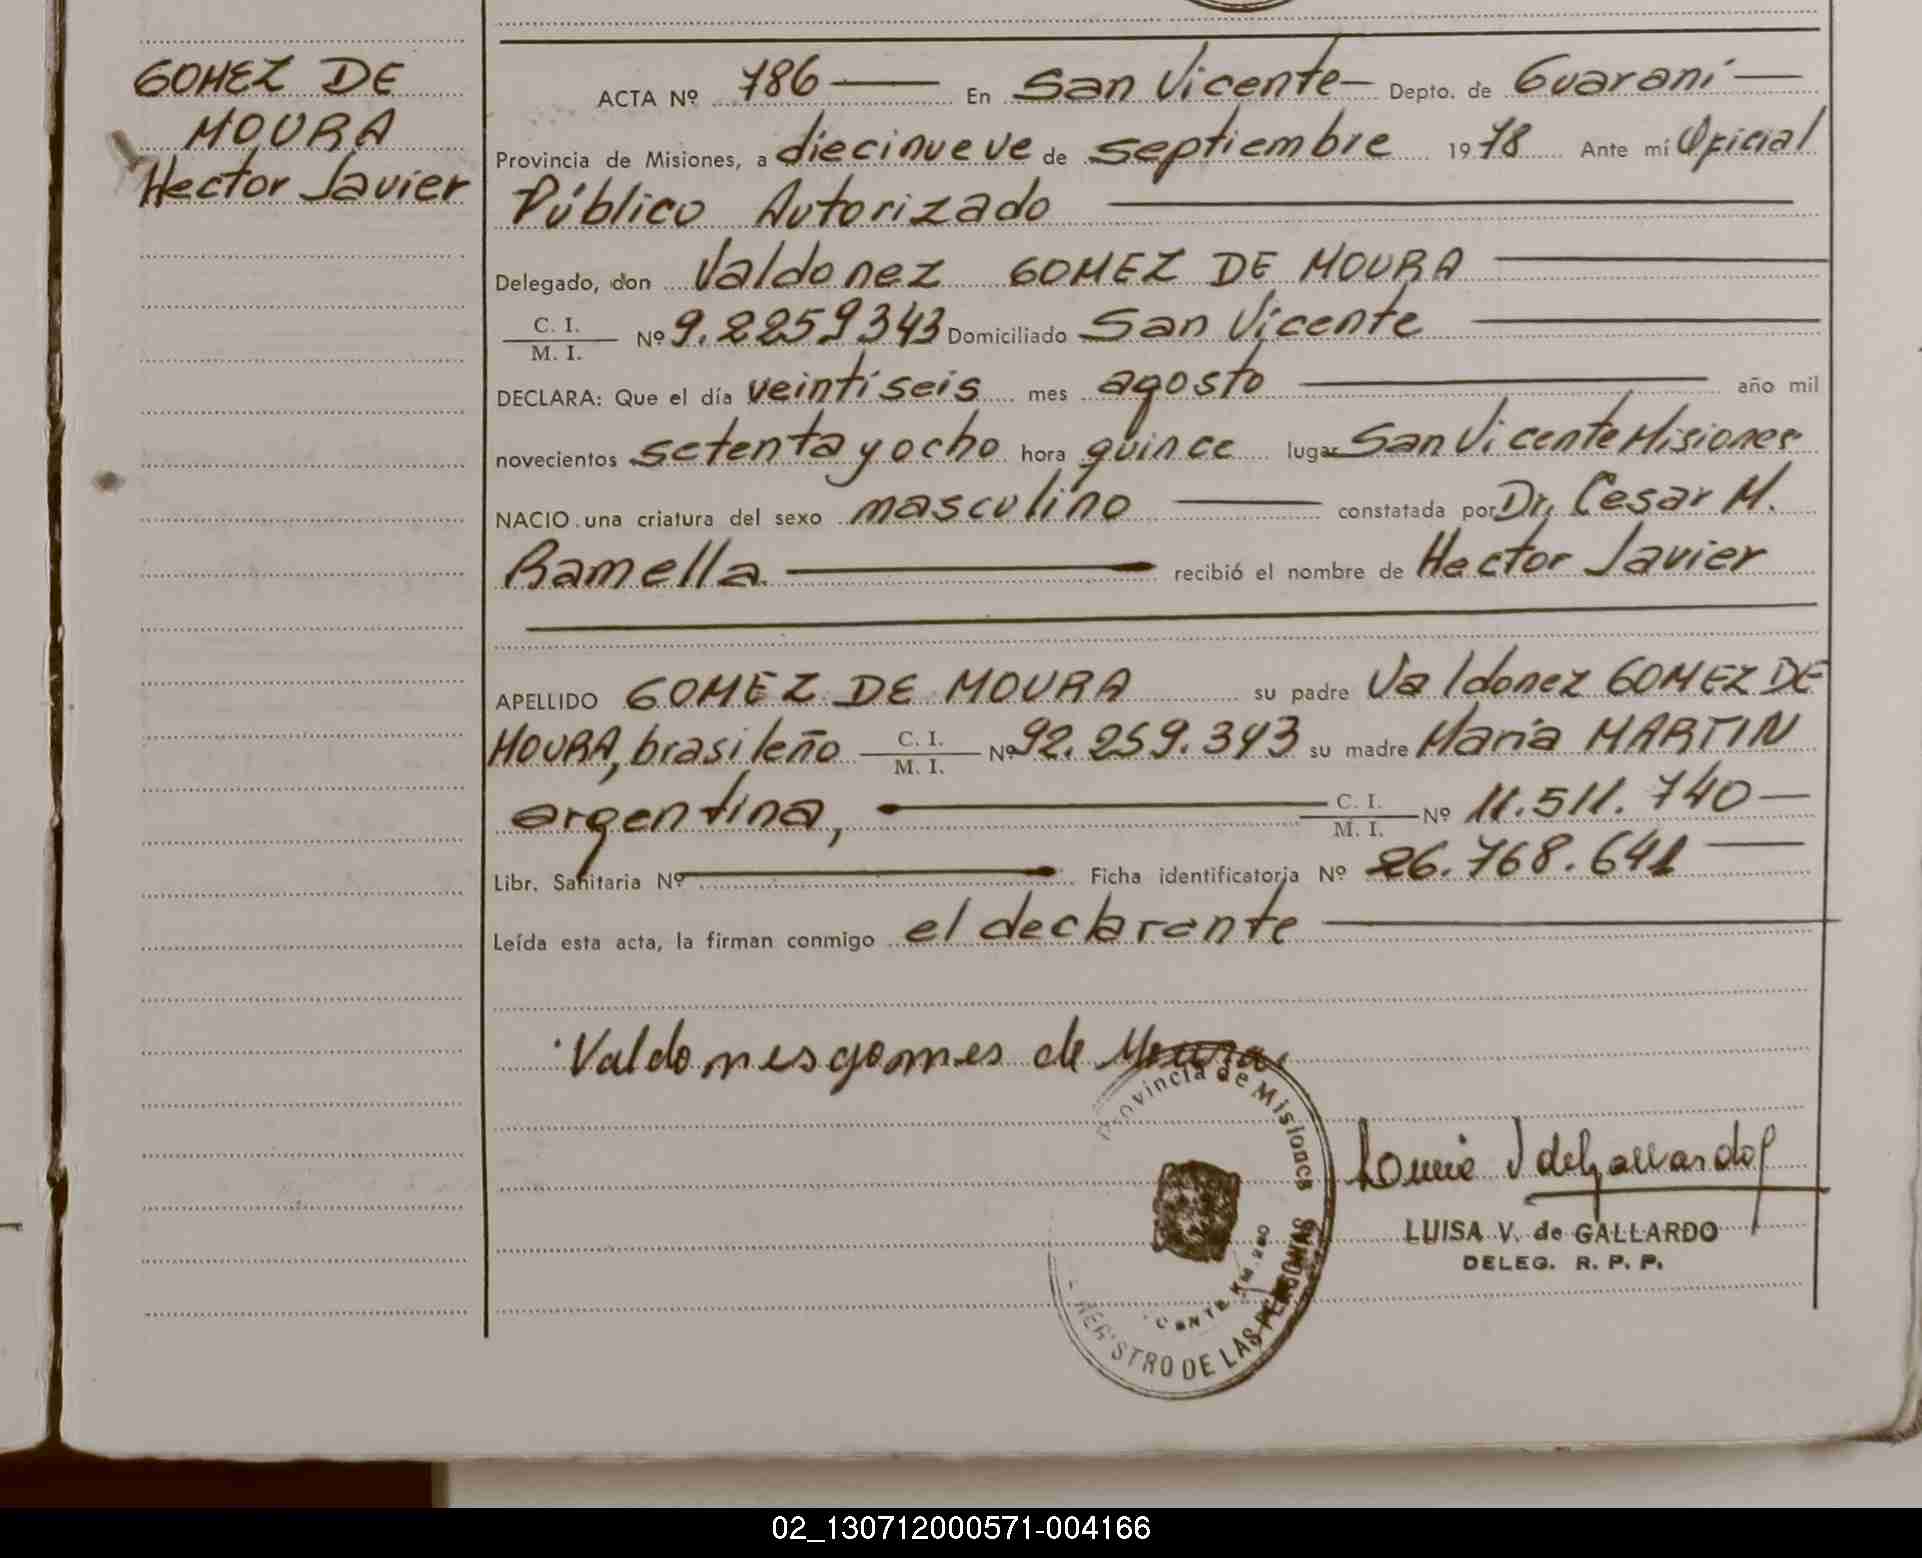 GOMEZ DE
MOURA
Hector Javier
ACTA Nº 786 En San Vicente Depto. de Guaraní
Provincia de Misiones, a diecinueve de septiembre 1978 Ante mí Oficial
Público Autorizado
Delegado, don Valdonez GOMEZ DE MOURA
C. I.
M. I. Nº 9.2259343 Domiciliado San Vicente
DECLARA: Que el día veintiseis mes agosto año mil
novecientos setenta y ocho hora quince lugar San Vicente Misiones
NACIO una criatura del sexo masculino constatada por Dr. Cesar M.
Ramella recibió el nombre de Hector Javier
APELLIDO GOMEZ DE MOURA su padre Valdonez GOMEZ DE
MOURA, brasileño C. I. M. I. Nº 92.259.343 su madre María MARTIN
argentina, C. I. M. I. Nº 11.511.740
Libr. Sanitaria Nº Ficha identificatoria Nº 26.768.641
Leída esta acta, la firman conmigo el declarante
Valdomes gomes de Moura
Provincia de Misiones
REGISTRO DE LAS PERSONAS
LUISA V. de GALLARDO
DELEG. R. P. P.
02_130712000571-004166